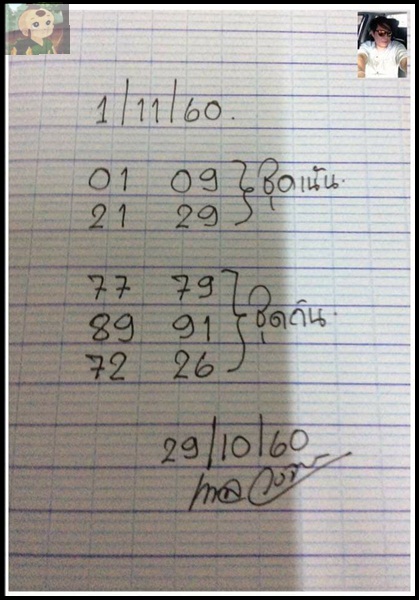 1/11/60.
01 09 } ชุดเน้น.
21 29
77 79
89 91 } ชุดกัน.
72 26
29/10/60